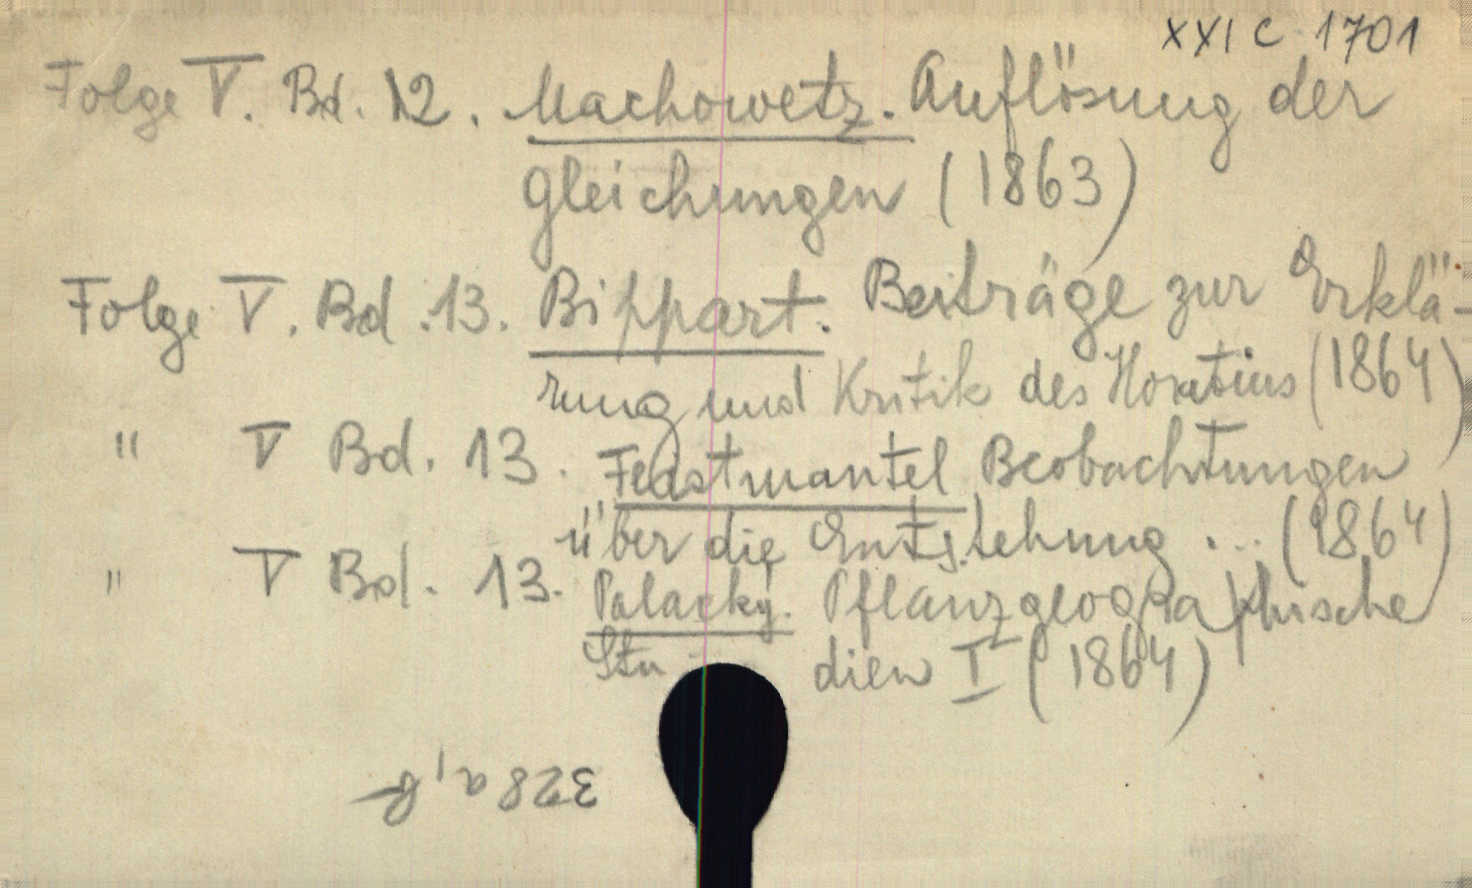 XXI C 1701
Folge V. Bd. 12. Machowetz. Auflösung der
Gleichungen (1863)
Folge V. Bd. 13. Bippart. Beiträge zur Erklä-
rung und Kritik des Horatius (1864)
" V Bd. 13. Feistmantel Beobachtungen
über die Entstehung ... (1864)
" V Bd. 13. Palacky. Pflanzgeographische
Stu - dien I (1864)
328a,